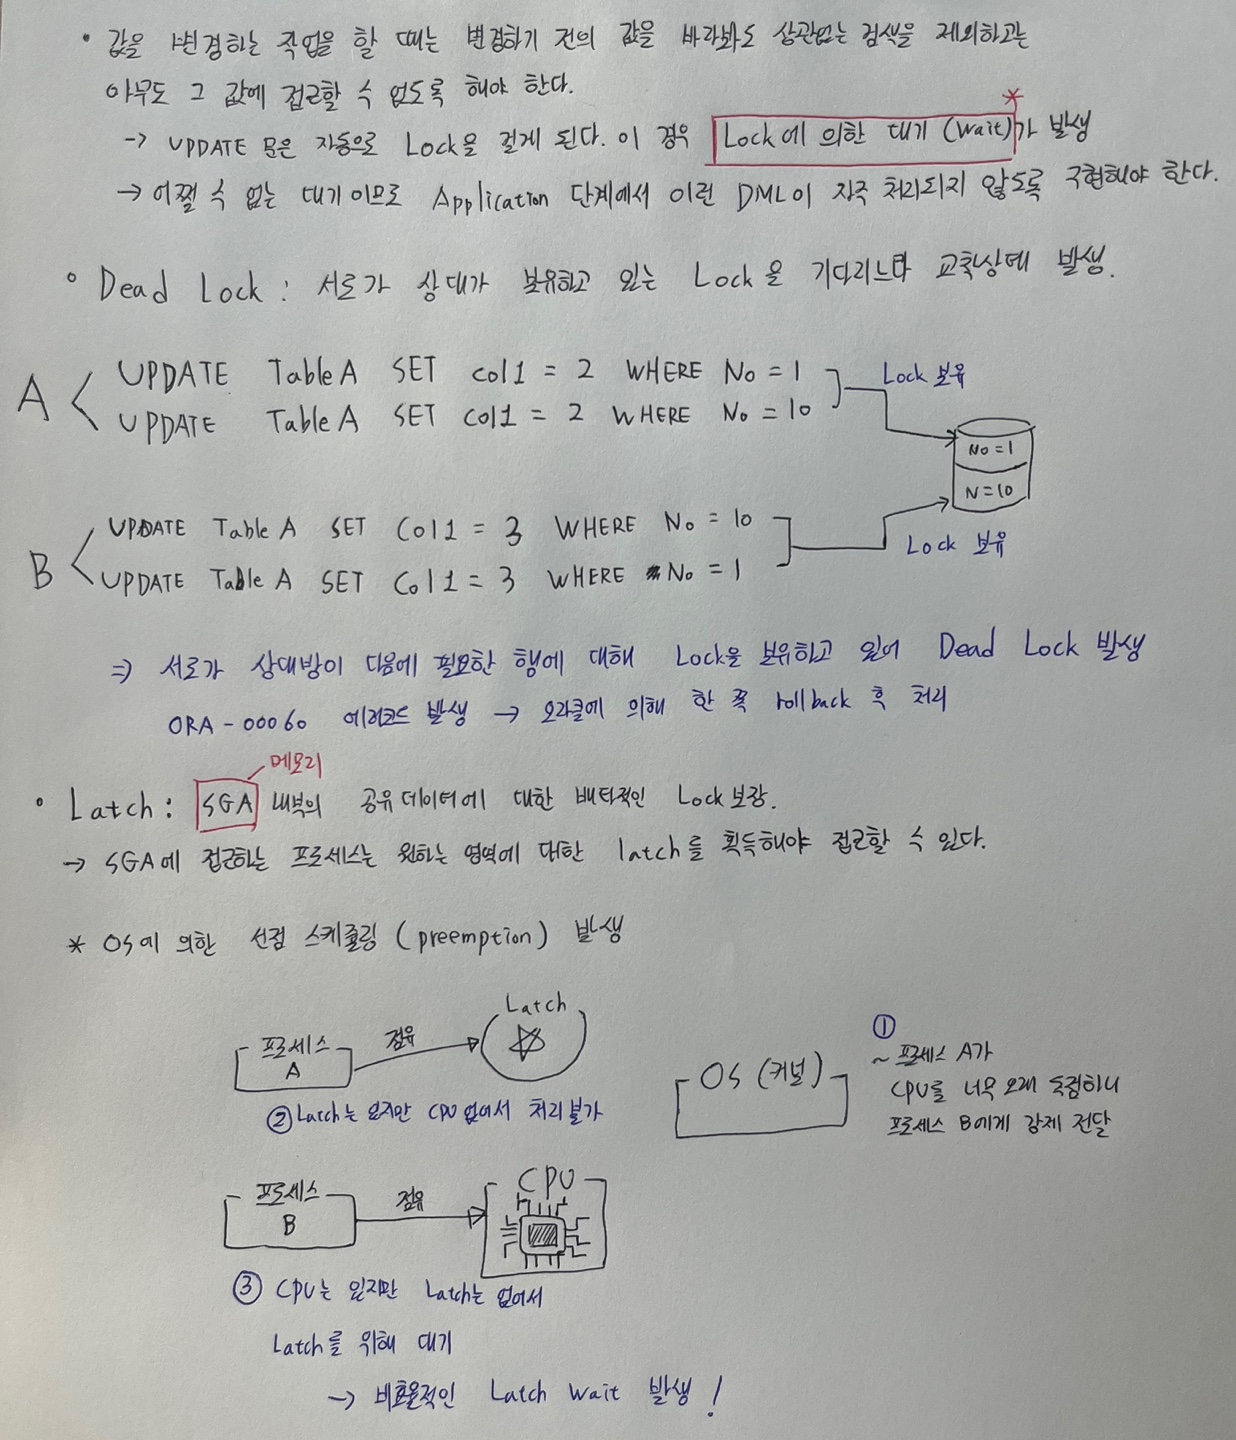 • 값을 변경하는 작업을 할 때는 변경하기 전의 값을 바라봐도 상관없는 검색을 제외하고는
아무도 그 값에 접근할 수 없도록 해야 한다.
*
→ UPDATE 문은 자동으로 Lock을 걸게 된다. 이 경우 Lock에 의한 대기 (Wait)가 발생
→ 어쩔 수 없는 대기이므로 Application 단계에서 이런 DML이 자주 처리되지 않도록 구현해야 한다.
• Dead Lock : 서로가 상대가 보유하고 있는 Lock을 기다리느라 교착상태 발생.
A < UPDATE TableA SET col1 = 2 WHERE No = 1
UPDATE TableA SET Col1 = 2 WHERE No = 10
Lock 보유
No = 1
N = 10
B < UPDATE Table A SET Col1 = 3 WHERE No = 10
UPDATE Table A SET Col1 = 3 WHERE No = 1
Lock 보유
⇒ 서로가 상대방이 다음에 필요한 행에 대해 Lock을 보유하고 있어 Dead Lock 발생
ORA - 00060 에러코드 발생 → 오라클에 의해 한 쪽 rollback 후 처리
메모리
• Latch : SGA 내부의 공유데이터에 대한 배타적인 Lock 보장.
→ SGA에 접근하는 프로세스는 원하는 영역에 대한 latch를 획득해야 접근할 수 있다.
* OS에 의한 선점 스케줄링 (preemption) 발생
프로세스
A
점유
Latch
② Latch는 있지만 CPU 없어서 처리불가
OS (커널)
①
~ 프로세스 A가
CPU를 너무 오래 독점하니
프로세스 B에게 강제 전달
프로세스
B
점유
CPU
③ CPU는 있지만 Latch는 없어서
Latch를 위해 대기
→ 비효율적인 Latch Wait 발생 !